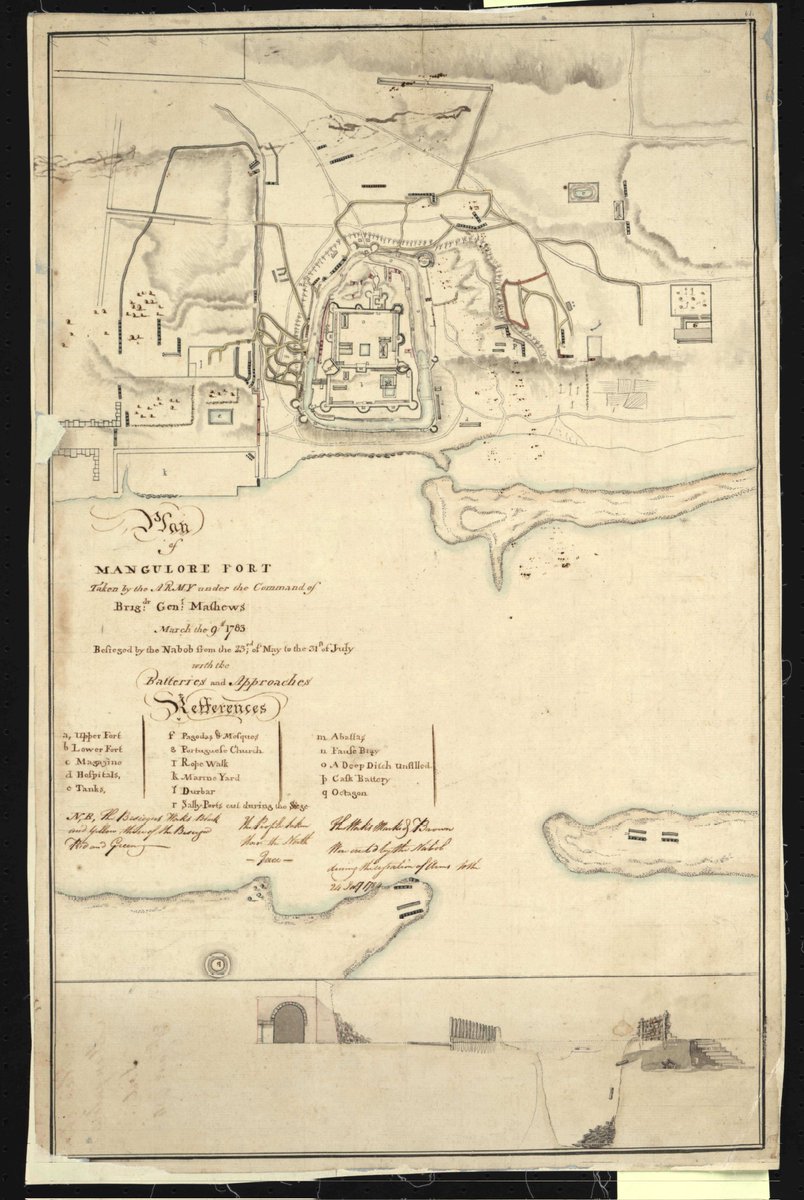 Plan
of
MANGULORE FORT
Taken by the ARMY under the Command of
Brigdr. Genl. Mathews
March the 9th 1783
Besieged by the Nabob from the 23rd of May to the 31st of July
with the
Batteries and Approaches
Refferences
a, Upper Fort
b Lower Fort
c Magazine
d Hospitals,
e Tanks,
f Pagodas & Mosques
g Portuguese Church
I Rope Walk
k Marine Yard
l Durbar
r Sally Ports cut during the Siege
m Abattas
n Fause Bray
o A Deep Ditch Unfilled
p Cask Battery
q Octagon
N,B, The Besiegers Works Black
and Yellow those of the Besieged
Red and Green
The Profile taken
Near the North
Face
The Works Marked Brown
Were erected by the Nabob
during the cessation of Arms to the
k